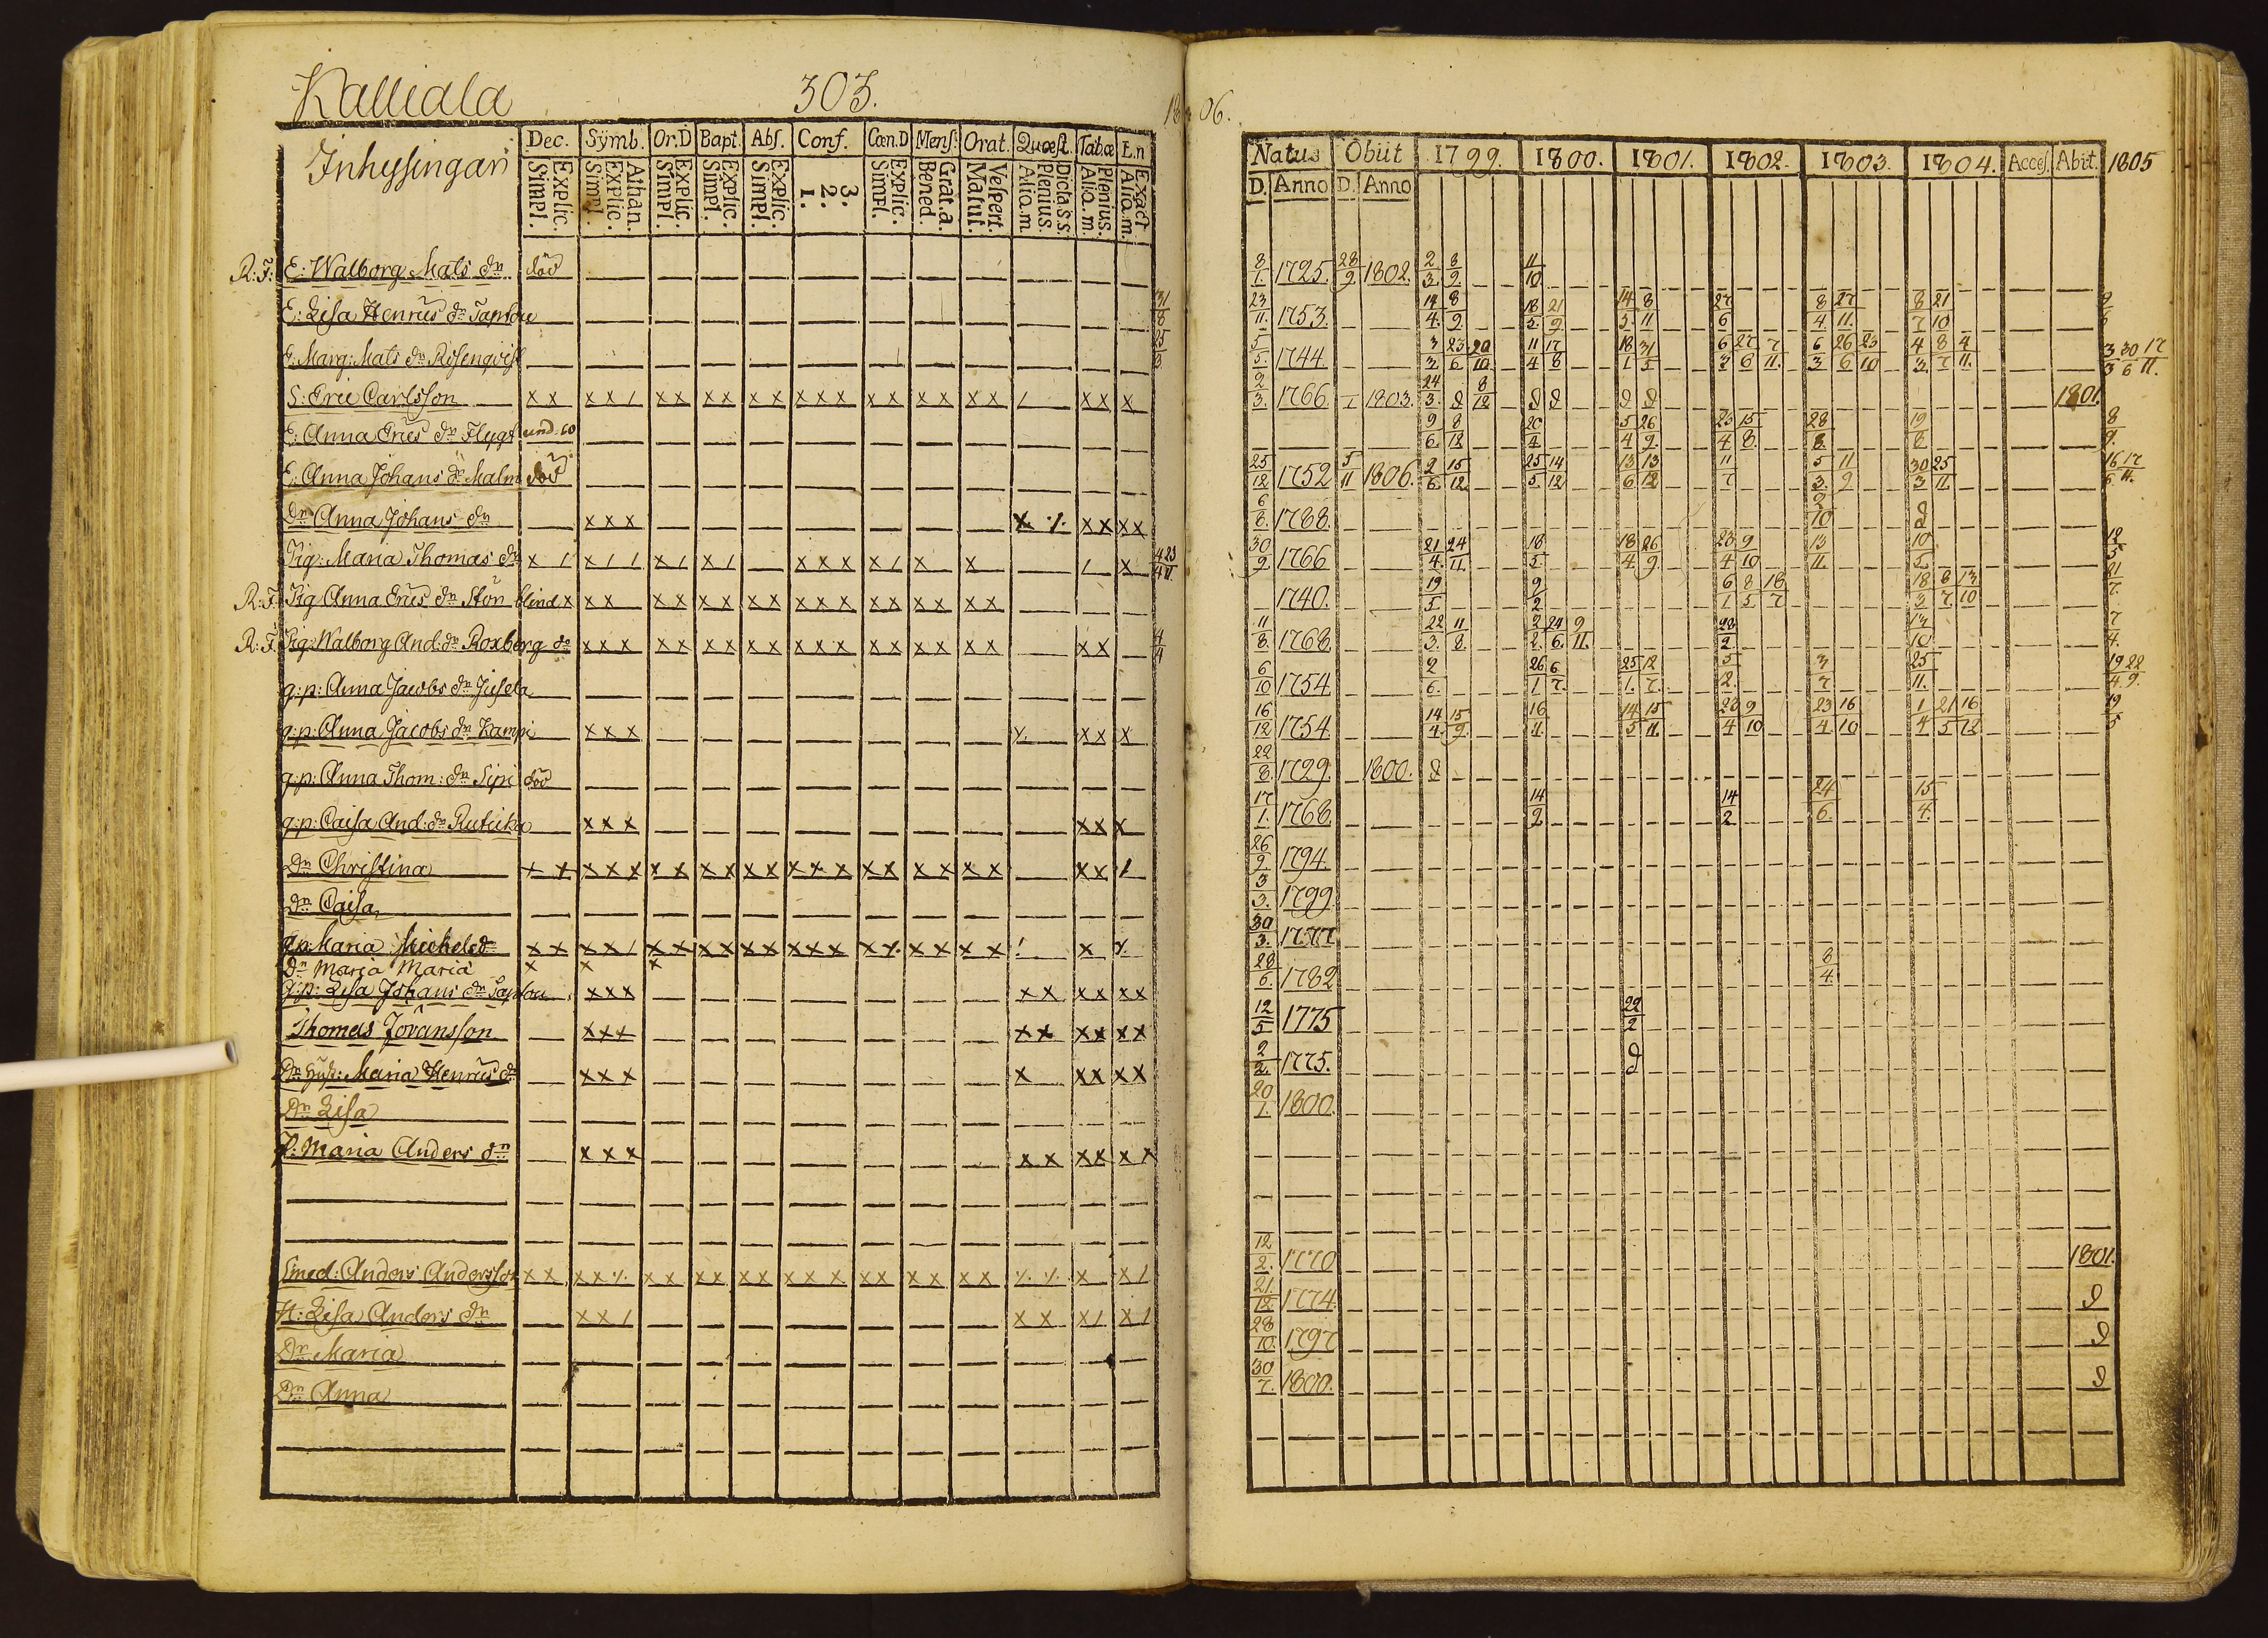 Kallīala 303. 1806.
Dec. Symb. Or.D Bapt. Abs. Conf. Cœn.D Mens. Orat. Quæst. Tab.œ
Natus Obiit 1799. 1800. 1801. 1802. 1803. 1804. Acces. Abit. 1805
Inhysingar
Explic. Simpl. Athan. Explic. Simpl. Explic. Simpl. Explic. Simpl. Explic. Simpl. 3. 2. 1. Explic. Simpl. Grat.a. Bened. Vespert. Matut. Dicta S.S. Plenius. Alio.m. Plenius. Alio.m. Exact Alio.m.
D. Anno D. Anno
R:F: E: Walborg Mats dr död 8/1. 1725. 28/9 1802. 2/3. 8/9. 11/10
E: Lisa Henrics dr 23/11. 1753. 14/4. 8/9. 18/5. 21/9 14/5. 8/11 27/6 8/4. 27/11. 8/7 21/10
E: Marg: Mats dr Rosenqvist 5/5. 1744. 3/3. 23/6 20/10. 11/4 17/8 18/1 31/5 6/3 27/6 7/11. 6/3 26/6 23/10 4/3. 8/7 4/11. 3/3 30/6 17/11.
S: Eric Carlsson x x x x / x x x x x x x x x x x x x x x x / x x x 2/3. 1766 1803. 24/3. 8/12 1801.
E: Anna Erics dr Flygt 9/6. 8/12 20/4 5/4 26/9. 23/4 15/8. 28/8. 19/8 8/9.
E: Anna Johans dr Malm död 25/12 1752 5/11 1806. 2/6. 15/12 25/5. 14/12 13/6 13/12 11/7 5/3. 11/9. 30/3 25/11. 16/6. 17/11.
Dr Anna Johans dr x x x x x x x 6/8. 1788.
Pig: Maria Thomas dr x / x / / x / x / x x x x / x x / x 4/4 23/11. 30/9 1766 21/4. 24/11. 18/5. 18/4. 26/9. 23/4 9/10 13/11. 10/5 12/5
R:F: Pig Anna Erics dr blind x x x x x x x x x x x x x x x x x 1740. 19/5. 9/2 6/1. 8/5 18/7 18/3 8/7. 13/10 21/7.
R:F. Pig: Walborg And: dr Roxberg do x x x x x x x x x x x x x x x x x x x x x 4/4 11/8. 1768. 22/3. 11/8. 2/2. 24/6. 9/11. 28/2 13/10 7/4.
g:p: Anna Jacobs dr 6/10 1754. 2/6. 26/1. 6/7. 25/1. 12/7. 5/2. 3/7 25/11. 19/4 22/9.
g:p: Anna Jacobs dr Kampi x x x x x x 16/12 1754. 14/4. 15/9. 16/4. 14/5 15/11. 28/4 9/10 23/4. 16/10 1/4 21/5 16/12 19/5
g:p: Anna Thom: dr Sipi död 22/8. 1729. 1800.
g:p: Caisa And: dr x x x x x x 17/1. 1768. 14/2. 14/2 24/6. 15/4.
Dr Christina x x x x x x x x x x x x x x x x x x x x x x / 26/9 1794.
Dr Caisa 3/3. 1799.
gp: Maria Michels d x x x x / x x x x x x x x x x x x x x x x 30/3. 1777.
Dr Maria Maria x x x
g:p: Lisa Johans dr x x x x x x x x x 28/6. 1782 8/4.
Thomas Jovansson x x x x x x x x x 12/5 1775 22/2
Dr Hus: Maria Henrics dr x x x x x x x x 2/2. 1775.
Dr Lisa 20/1. 1800.
P: Maria Anders dr x x x x x x x x x
Smed: Anders Andersson x x x x x x x x x x x x x x x x x x x x x / 12/2. 1770 1801.
H: Lisa Anders dr x x / x x x / x / 21./12. 1774.
Dr Maria 28/10. 1797
Dr Anna 30/7. 1800.